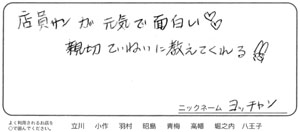 店員サンが元気で面白い♡♡
親切ていねいに教えてくれる
ニックネーム ヨッチャン
よく利用されるお店を
○で囲んでください。
立川 小作 羽村 昭島 青梅 高幡 堀之内 八王子